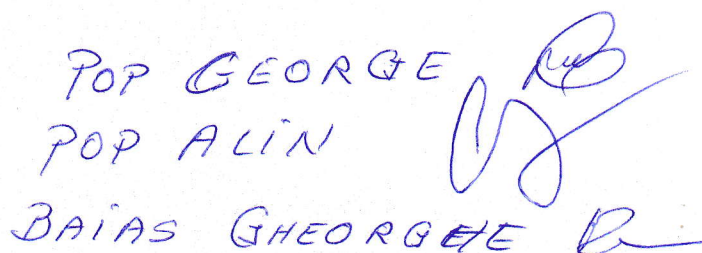 POP GEORGE
POP ALIN
BAIAS GHEORGHE